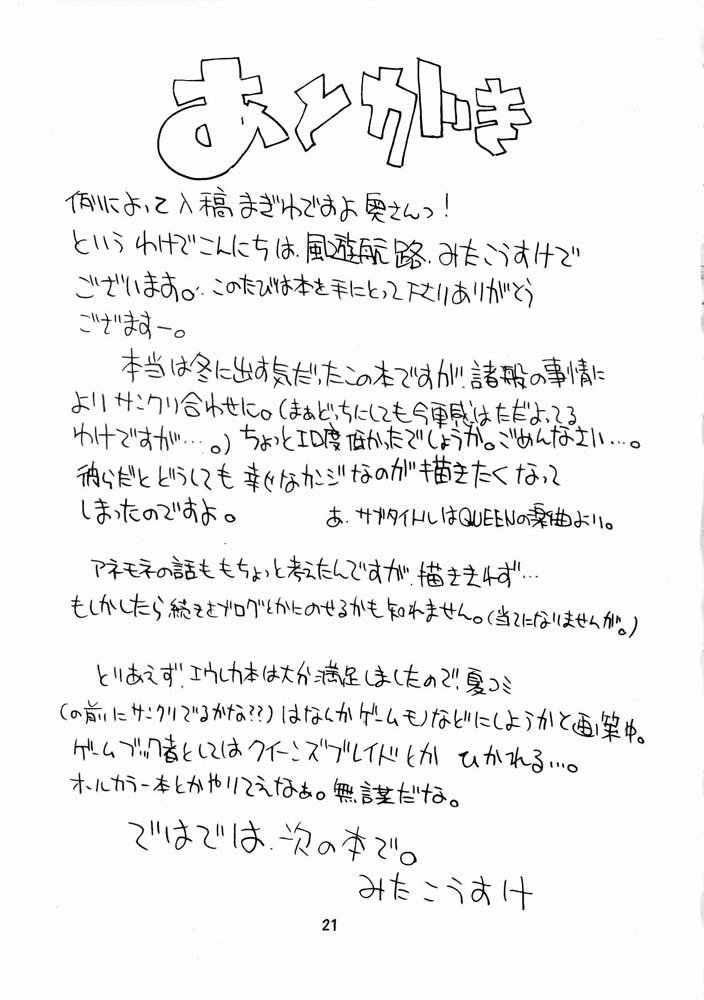 あとがき
例によって入稿まぎわですよ奥さんっ!
というわけでこんにちは、風遊航路、みたこうすけで
ございます。このたびは本を手にとって下さりありがとう
ございますー。
本当は冬に出す気だったこの本ですが、諸般の事情に
よりサンクリ合わせに。(まぁどっちにしても今更感はただよってる
わけですが…。)ちょっとエロ度低かったでしょうか。ごめんなさい…。
彼らだとどうしても幸せなカンジなのが描きたくなって
しまったのですよ。
あ、サブタイトルはQUEENの楽曲より。
アネモネの話ももちょっと考えたんですが、描ききれず…
もしかしたら続きをブログとかにのせるかも知れません。(当てになりませんが。)
とりあえず、エウレカ本は大か満足しましたので、夏コミ
(の前にサンクリでるかな??)はなんかゲームモノなどにしようかと画策中。
ゲームブック者としてはクイーンズブレイドとか ひかれる…。
オールカラー本とかやりてえなぁ。無謀だな。
ではでは、次の本で。
みたこうすけ
21